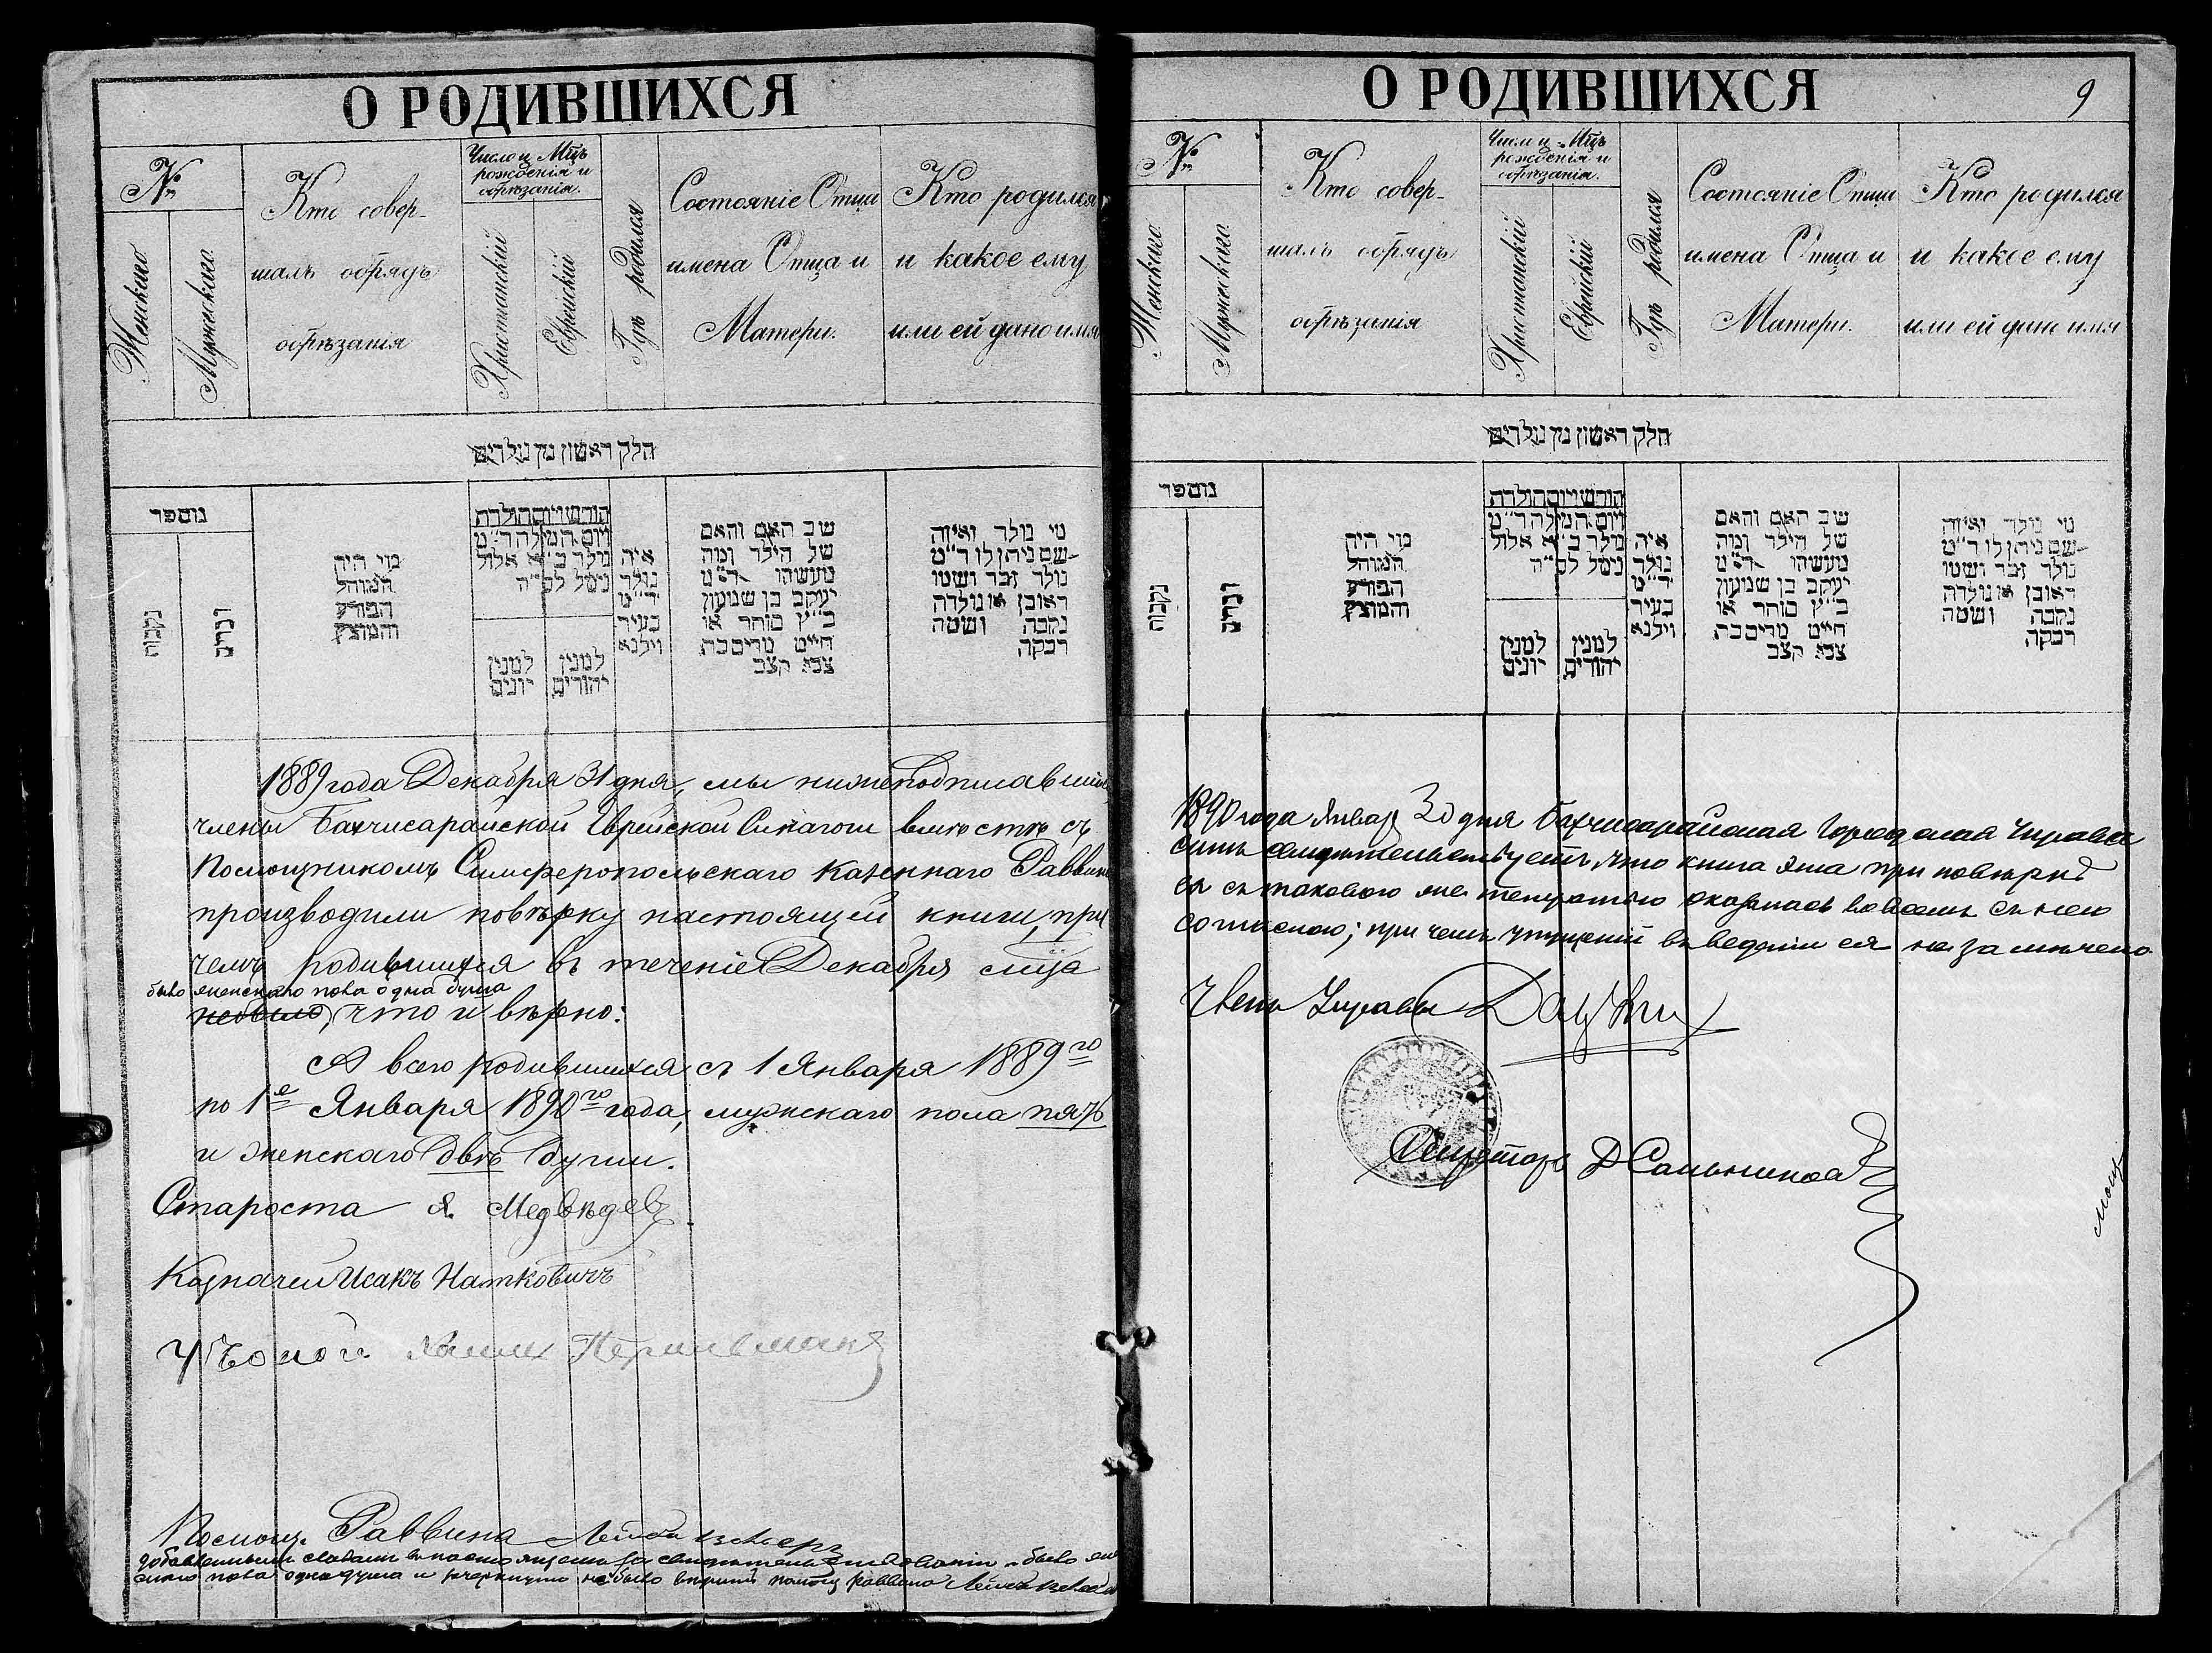 О РОДИВШИХСЯ
№
Женскихъ
Мужескихъ
Кто совер-
шалъ обрядъ
обрѣзанія
Число и Мцъ
рожденія и
обрѣзанія.
Христіанскій
Еврейскій
Гдѣ родился
Состояніе Отца
имена Отца и
Матери.
Кто родился
и какое ему
или ей дано имя
חלק ראשון מן נולדים
מספר
נקבות
זכרים
מי היה
המוהל
הפורע
והמוצץ
חודש ויום הולדת
ויום המילה ד״מ
נולד ב״א אלול
נימל לס״ה
למנין
יונים
למנין
יהודים
איה
נולד
ד״מ
בעיר
ווילנא
שב האם והאם
של הילד ומה
מעשהו ד״מ
יעקב בן שמעון
כ״ץ סוחר או
חייט מרים בת
צבא קצב
מי נולד ואיזה
שם ניתן לו ד״מ
נולד זכר ושמו
ראובן או נולדה
נקבה ושמה
רבקה
1889 года Декабря 31 дня, мы нижеподписавшіеся
члены Бахчисарайской Еврейской Синагоги вмѣстѣ съ
Помощникомъ Симферопольскаго Казеннаго Раввина
производили повѣрку настоящей книги, при
чемъ родившихся въ теченіе Декабря мца
было женскаго пола одна душа
небыло, что и вѣрно:
А всего родившихся съ 1 Января 1889го
по 1е Января 1890го года, мужскаго пола пять
и женскаго двѣ души.
Староста Я. Медвѣдевъ.
Казначей Исакъ Натковичъ
Учоной
Помощ. Раввина
добавленными словами въ настоящемъ было жен
скаго пола одна душа и зачеркнуто небыло вѣрить помощ раввина
О РОДИВШИХСЯ
9
№
Женскихъ
Мужескихъ
Кто совер-
шалъ обрядъ
обрѣзанія
Число и Мцъ
рожденія и
обрѣзанія.
Христіанскій
Еврейскій
Гдѣ родился
Состояніе Отца
имена Отца и
Матери.
Кто родился
и какое ему
или ей дано имя
חלק ראשון מן נולדים
מספר
נקבות
זכרים
מי היה
המוהל
הפורע
והמוצץ
חודש ויום הולדת
ויום המילה ד״מ
נולד ב״א אלול
נימל לס״ה
למנין
יונים
למנין
יהודים
איה
נולד
ד״מ
בעיר
ווילנא
שב האם והאם
של הילד ומה
מעשהו ד״מ
יעקב בן שמעון
כ״ץ סוחר או
חייט מרים בת
צבא קצב
מי נולד ואיזה
שם ניתן לו ד״מ
נולד זכר ושמו
ראובן או נולדה
נקבה ושמה
רבקה
1890 года Январ 3 дня Бахчисарайская Городская Управа
симъ свидѣтельствуетъ, что книга эта при повѣркѣ
ея съ таковою же тетрадью оказалась во всемъ съ нею
согласною; при чемъ упущеній въ веденіи ея не замѣчено.
Членъ Управы
Секретарь Д Сальников